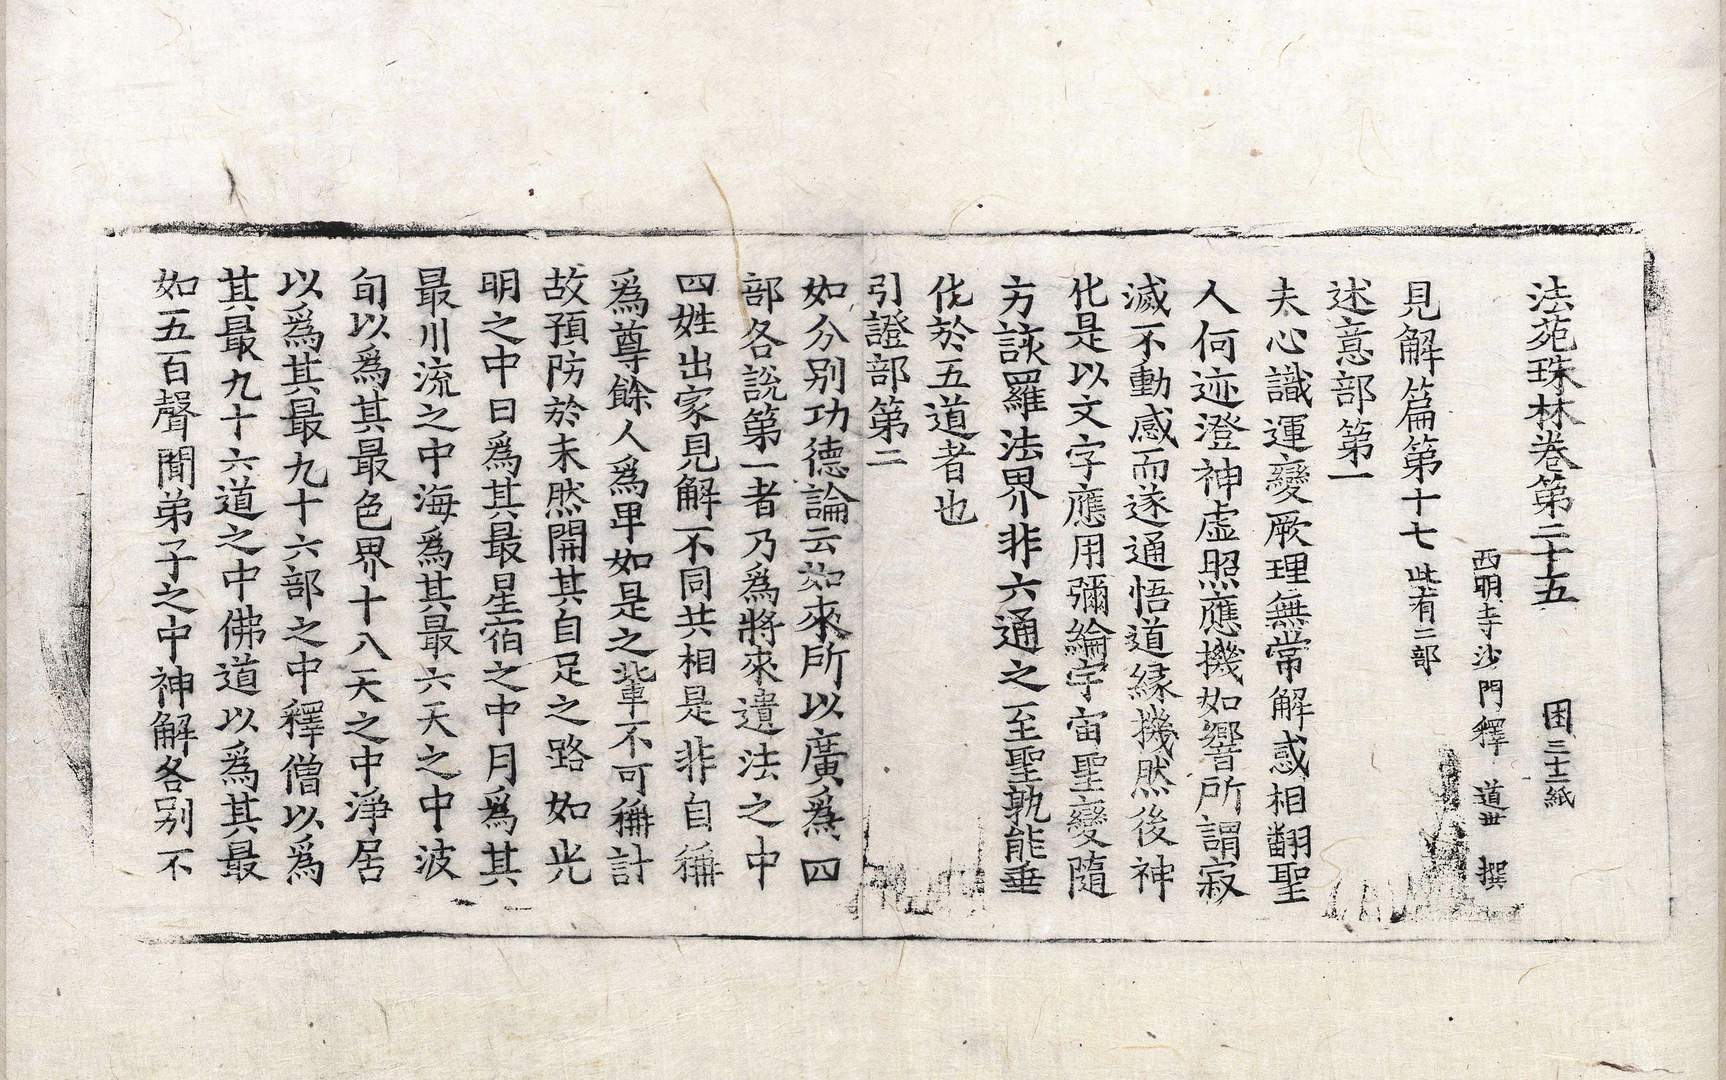 法苑珠林卷第二十五　困三十二紙
西明寺沙門釋　道世　撰
見解篇第十七 此有二部
述意部第一
夫心識運變厥理無常解惑相翻聖
人何迹澄神虛照應機如響所謂寂
滅不動感而遂通悟道緣機然後神
化是以文字應用彌綸宇宙聖變隨
方該羅法界非六通之至聖孰能垂
化於五道者也
引證部第二
如分別功德論云如來所以廣爲四
部各說第一者乃爲將來遺法之中
四姓出家見解不同共相是非自稱
爲尊餘人爲卑如是之輩不可稱計
故預防於未然開其自足之路如光
明之中日爲其最星宿之中月爲其
最川流之中海爲其最六天之中波
旬以爲其最色界十八天之中淨居
以爲其最九十六部之中釋僧以爲
其最九十六道之中佛道以爲其最
如五百聲聞弟子之中神解各別不